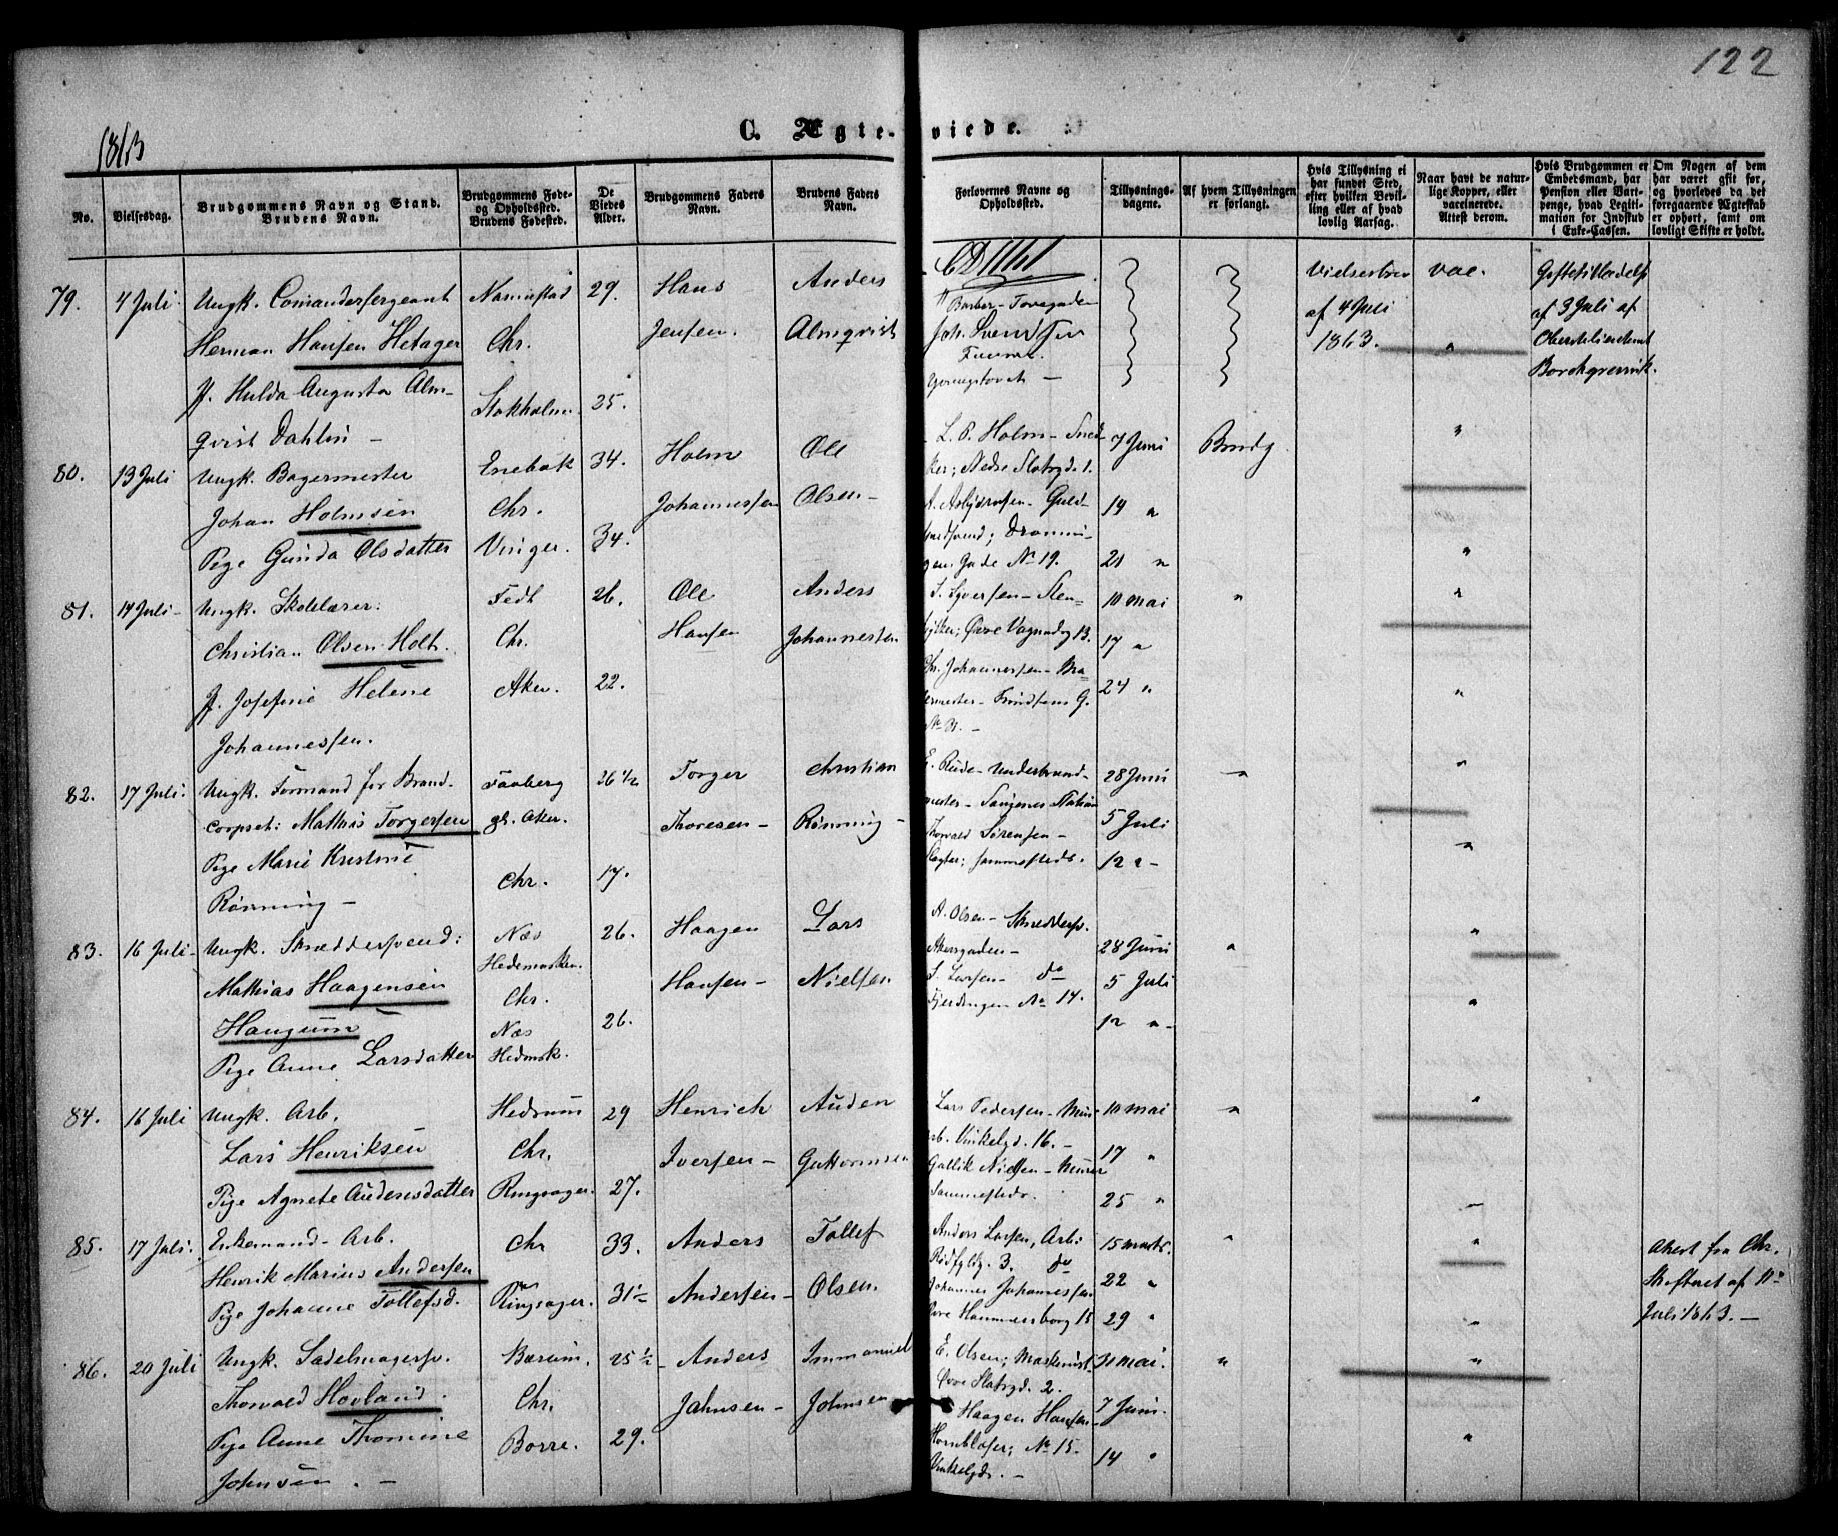 122
1863
C. Ægte-viede.
No.
Vielsesdag.
Brudgommens Navn og Stand.
Brudens Navn.
Brudgommens Føde-
og Opholdssted.
Brudens Fødested.
De
Viedes
Alder.
Brudgommens Faders
Navn.
Brudens Faders
Navn.
Forlovernes Navne og
Opholdssted.
Tillysnings-
dagene.
Af hvem Tillysningen
er forlangt.
Hvis Tillysning ei
har fundet Sted,
efter hvilken Bevil-
ling eller af hvad
lovlig Aarsag.
Naar havt de natur-
lige Kopper, eller
vaccinerede.
Attest derom.
Hvis Brudgommen er
Embedsmand, har
Pension eller Vart-
penge, hvad Legiti-
mation for Indskud
i Enke-Cassen.
Om Nogen af dem
har været gift før,
og hvorledes da det
foregaaende Ægteskab
er ophørt, samt om
lovligt Skifte er holdt.
79. 4 Juli Ungk. Comandersergeant 29. Hans Anders Vielsesbrev vac.
Herman Hansen Hetager Chr. Jensen. Almqvist af 4 Juli af 3 Juli af
1863.
P. Hulda Augusta Alm- Stokholm 35.
qvist Dahlin –
80. 13 Juli Ungk. Bagermester Enebak 34. Holm Ole L. P. Holm – Sned- 7 Juni Brudg
Johan Holmsen Chr. Johannessen Olsen – 14 "
Pige Gunda Olsdatter Vinger. 34. gens Gade No 19. 21 "
81. 14 Juli – Ungk. Skolelærer: Fedt 26. Ole Anders S. Syversen – Sten- 10 mai "
Christian Olsen Holt. Chr. Hansen Johannessen 17 "
P. Josefine Helene Aker. 22. Chr. Johannessen – Ba- 24 "
Johannessen.
82. 17 Juli. Ungk. Formand for Brand- Faaberg 26 1/2 Torger Christian 28 Juni "
Corpset: Mathis Torgersen gl. Aker. Thoresen – Rønning – 5 Juli
Pige Marie Kristine Chr. 17. Sammesteds. 12 " –
Rønning –
83. 16 Juli – Ungk. Skræddersvend: Næs 26. Haagen Lars A. Olsen – Skræddersv. 28 Juni "
Hedemarken.
Mathias Haagensen Chr. Hansen – Nielsen S. Larsen – do 5 Juli
Haugum Næs 26. Fjerdingen No 14. 12 " –
Pige Anne Larsdatter Hedmsk.
84. 16 Juli Ungk. Arb. Hedrum 29 Henrich Auden Lars Pedersen – Mur- 10 mai "
Lars Henriksen Chr. Iversen – Guttormsen arb. Vinkelgd. 16. – 17 "
Pige Agnete Audensdatter Ringsager. 27. Gullik Nielsen – Murer
Sammesteds. 25 "
85. 17 Juli. Enkemand – Arb. Chr 33. Anders Tollef Anders Larsen, Arb: 15 marts. "
Henrik Marius Andersen 3. do 22 " Skifteret af 11te
Pige Johanne Tollefsd. Ringsager. 31 1/2 Andersen – Olsen. Johannes Johannessen
Øvre Hammersborg 15 29 " Juli 1863. –
86. 20 Juli Ungk. Sadelmagersv. Bærum. 25 1/2 – Anders Immanuel E. Olsen; Maskinist 31 mai. "
Thorvald Hovland. Chr. Jahnsen – Johnsen Øvre Slotsgd. 2.
Haagen Hansen – 7 Juni.
Pige Anne Thomine Borre. 29. Hornblæser; No 15. 14 "
Johnsen. – Vinkelgd. –